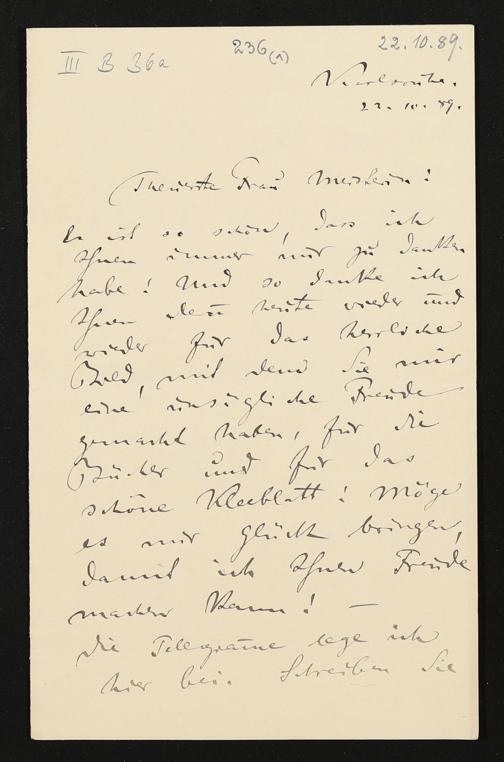 III B 36a
236(1)
22.10.89.
Karlsruhe.
22. 10. 89.
Theuerste Frau Meisterin!
Es ist so schön, dass ich
Ihnen immer nur zu danken
habe! Und so danke ich
Ihnen denn heute wieder und
wieder für das herrliche
Bild, mit dem Sie mir
eine unsägliche Freude
gemacht haben, für die
Bücher und für das
schöne Kleeblatt! Möge
es mir Glück bringen,
damit ich Ihnen Freude
machen kann! —
Die Telegramme lege ich
hier bei. Schreiben Sie